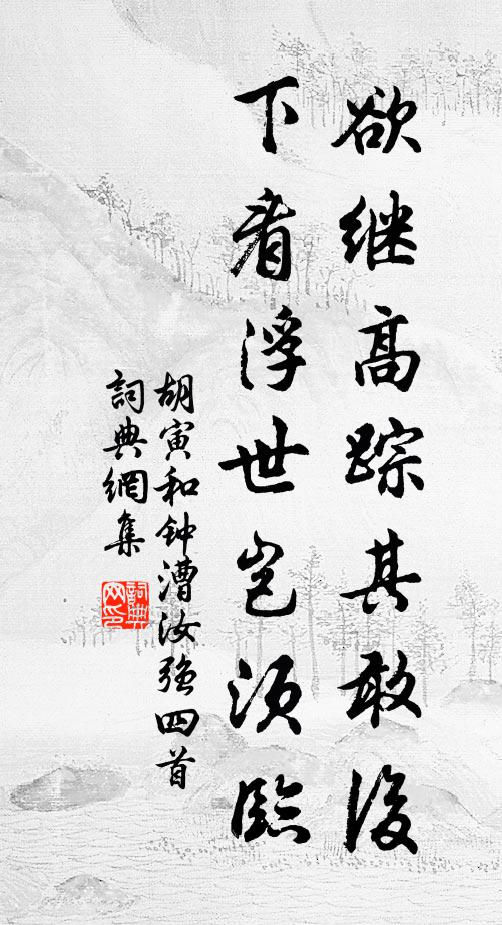 欲继高踪其敢後
下看浮世岂须臨
胡寅和钟漕汝強四首
詞典網集
詞典网印